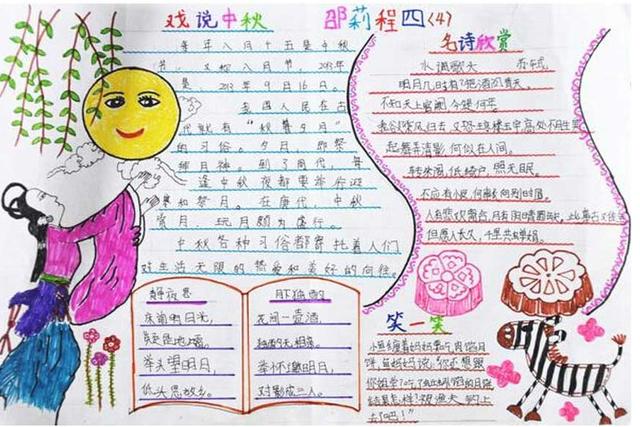 戏说中秋 邵莉程四(4)
每年八月十五是中秋
节，又称八月节，2013年
是，2013年9月16日。
我国人民在古
代就有“秋暮夕月”
的习俗。夕月，即祭
拜月神。到了周代，每
逢中秋夜都要举行迎
寒和祭月。在唐代，中秋
赏月、玩月颇为盛行。
中秋各种习俗都寄托着人们
对生活无限的热爱和美好的向往。
静夜思
床前明月光，
疑是地上霜。
举头望明月，
低头思故乡。
月下独酌
花间一壶酒，
独酌无相亲。
举杯邀明月，
对影成三人。
名诗欣赏
水调歌头 苏轼
明月几时有？把酒问青天。
不知天上宫阙，今夕是何年。
我欲乘风归去，又恐琼楼玉宇，高处不胜寒
起舞弄清影，何似在人间。
转朱阁，低绮户，照无眠。
不应有恨，何事长向别时圆。
人有悲欢离合，月有阴晴圆缺，此事古难全
但愿人长久，千里共婵娟。
笑一笑